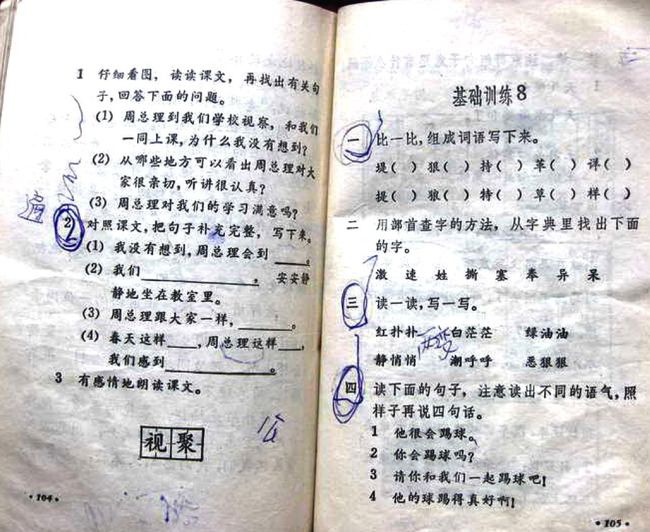 1 仔细看图，读读课文，再找出有关句
子，回答下面的问题。
(1) 周总理到我们学校视察，和我们
一同上课，为什么我没有想到？
(2) 从哪些地方可以看出周总理对大
家很亲切，听讲很认真？
(3) 周总理对我们的学习满意吗？
遍
2 对照课文，把句子补充完整，写下来。
(1) 我没有想到，周总理会到____。
(2) 我们________，安安静
静地坐在教室里。
(3) 周总理跟大家一样，____。
(4) 春天这样____，周总理这样____，
我们感到________。
3 有感情地朗读课文。
视 聚
·104·
基础训练8
一 比一比，组成词语写下来。
堤( ) 狠( ) 持( ) 革( ) 详( )
提( ) 狼( ) 特( ) 草( ) 样( )
二 用部首查字的方法，从字典里找出下面
的字。
激 速 姓 撕 塞 奉 异 呆
三 读一读，写一写。
红扑扑 白茫茫 绿油油
静悄悄 潮呼呼 恶狠狠
两变
四 读下面的句子，注意读出不同的语气，照
样子再说四句话。
1 他很会踢球。
2 你会踢球吗？
3 请你和我们一起踢球吧！
4 他的球踢得真好啊！
·105·